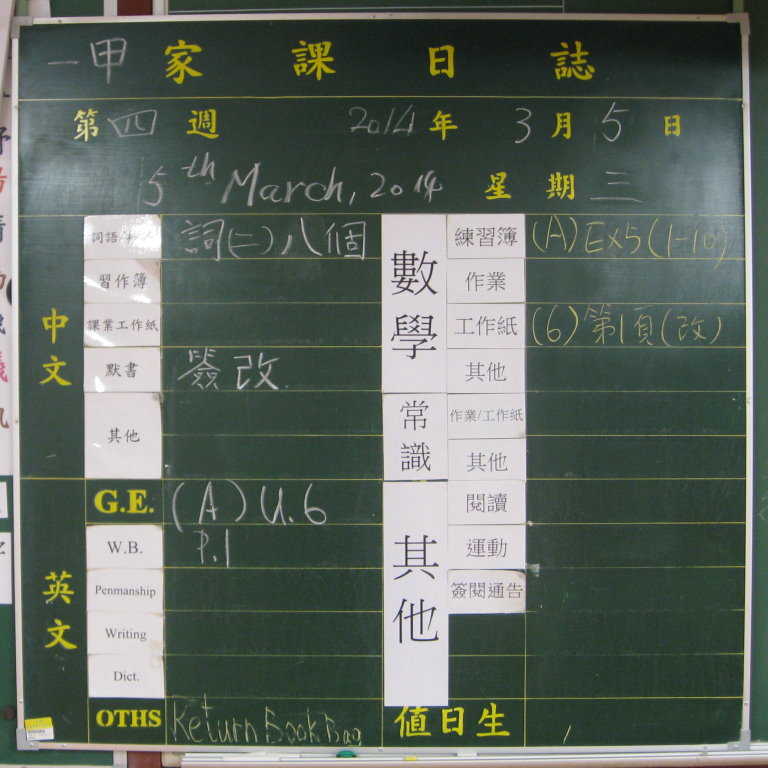 一甲 家 課 日 誌
第四週 2014年 3月5日
5th March, 2014 星期三
中文
詞語
詞(二)八個
習作簿
課業工作紙
默書
簽改
其他
英文
G.E.
(A) U.6
W.B.
P.1
Penmanship
Writing
Dict.
OTHS
Return Book Bag
數學
練習簿
(A) Ex5 (1-10)
作業
工作紙
(6) 第1頁(改)
其他
常識
作業/工作紙
其他
其他
閱讀
運動
簽閱通告
值日生